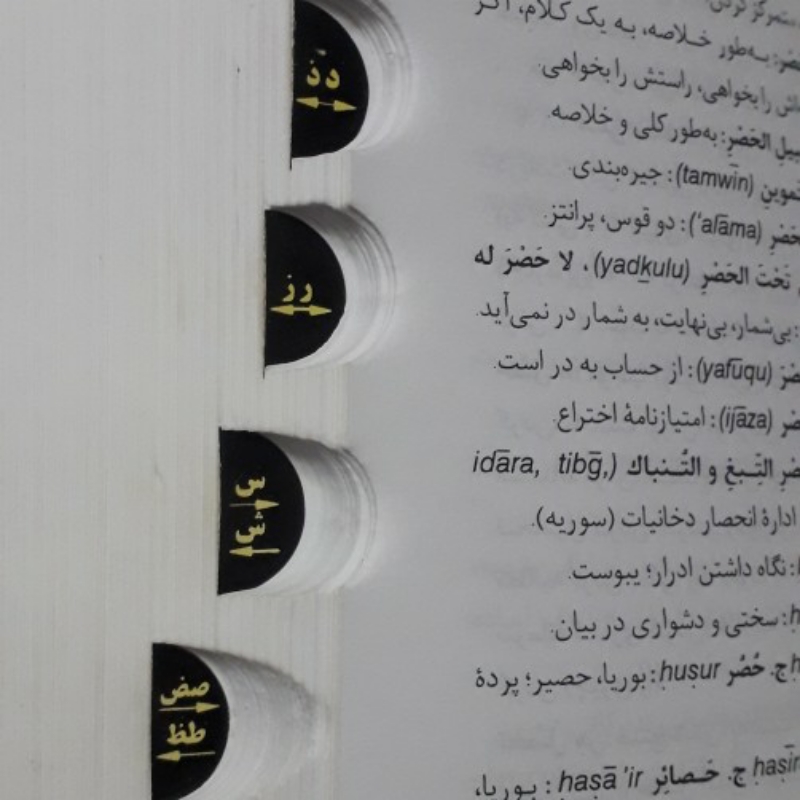 متمرکز کردن.
به‌طور خلاصه، به یک کلام، اگر
را بخواهی، راستش را بخواهی.
الحَصْرِ: به‌طور کلی و خلاصه.
(tamwīn): جیره‌بندی.
(ʻalāma): دو قوس، پرانتز.
تَحْتَ الحَصْرِ (yadḵulu)، لا حَصْرَ له
: بی‌شمار، بی‌نهایت، به شمار در نمی‌آید.
(yafūqu): از حساب به در است.
(ijāza): امتیازنامهٔ اختراع.
التِّبغِ و التُّنباك (idāra, tibḡ,
ادارهٔ انحصار دخانیات (سوریه).
: نگاه داشتن ادرار؛ یبوست.
: سختی و دشواری در بیان.
ج. حُصُر ḥuṣur: بوریا، حصیر؛ پردهٔ
ج. حَصائِر ḥaṣāʼir: بوریا،
د ذ
ر ز
س
ش
ص ض
ط ظ